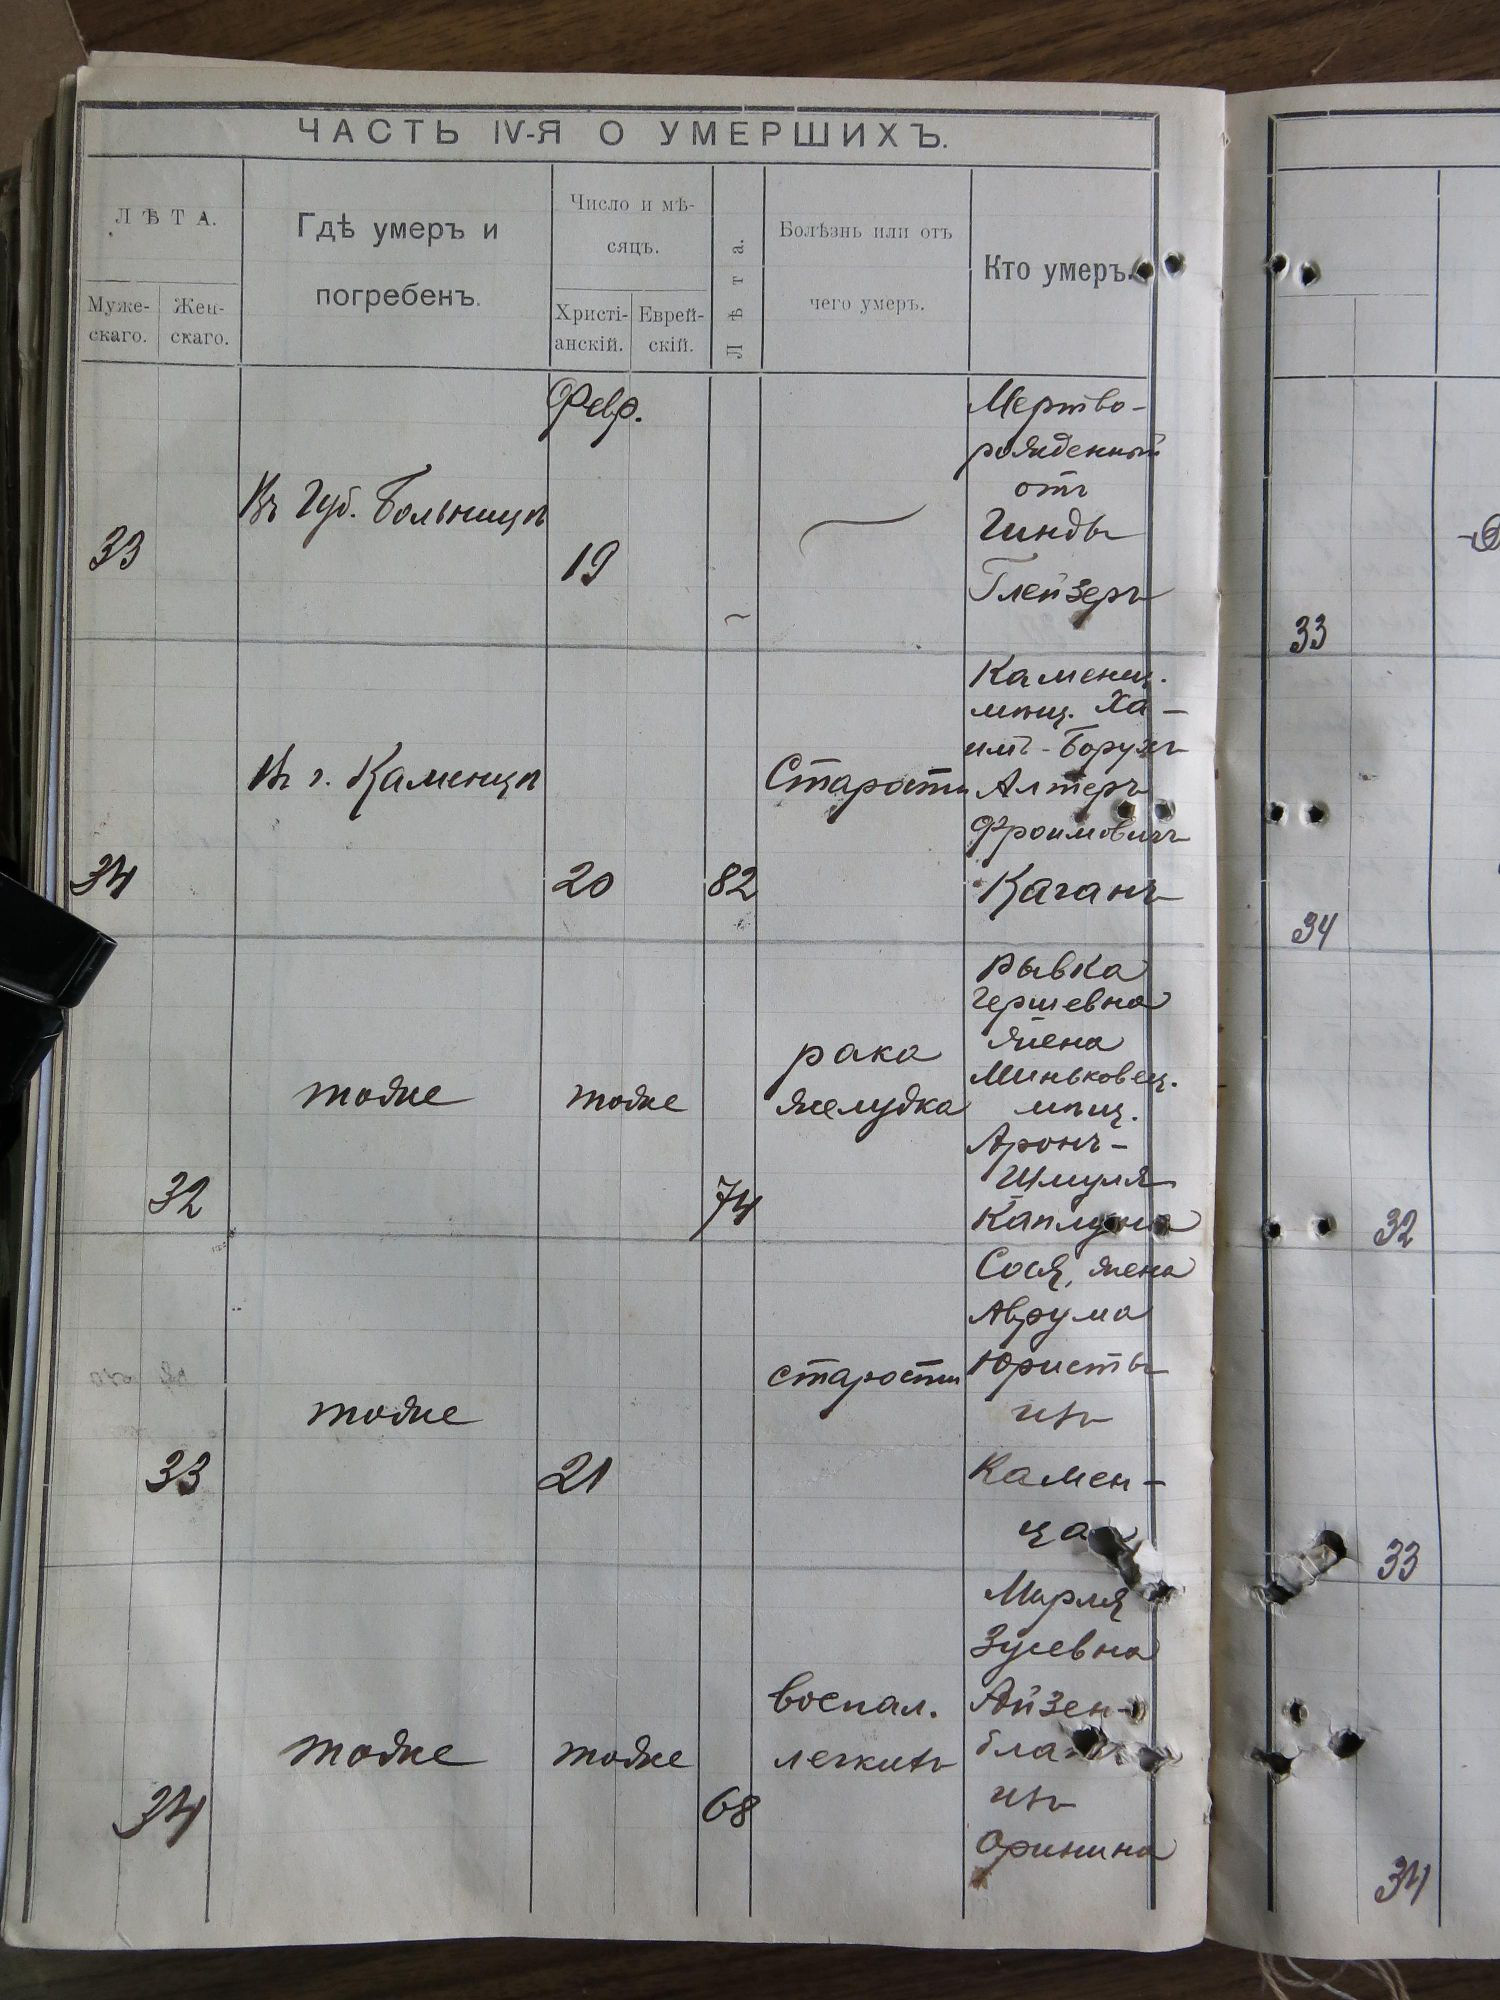 ЧАСТЬ IV-Я О УМЕРШИХЪ.
ЛѢТА.
Муже-
скаго.
Жен-
скаго.
Гдѣ умеръ и
погребенъ.
Число и мѣ-
сяцъ.
Христі-
анскій.
Еврей-
скій.
Лѣта.
Болѣзнь или отъ
чего умеръ.
Кто умеръ.
33
Въ Губ. Больницѣ
Февр.
19
Мертво-
рожденный
отъ
Гинды
Глейзеръ
34
Въ г. Каменцѣ
20
82
Старости
Каменец.
мѣщ. Ха-
имъ-Борухъ
Алтеръ
Фроимовичъ
Каганъ
32
тоже
тоже
74
рака
желудка
Рывка
Гершевна
жена
Миньковец.
мѣщ.
Аронъ-
Шмуля
Каплуна
33
тоже
21
старости
Сося, жена
Аврума
Юристы
изъ
Камен-
ца
34
тоже
тоже
68
воспал.
легкихъ
Мирля
Зусевна
Айзен-
изъ
Оринина
33
34
32
33
34